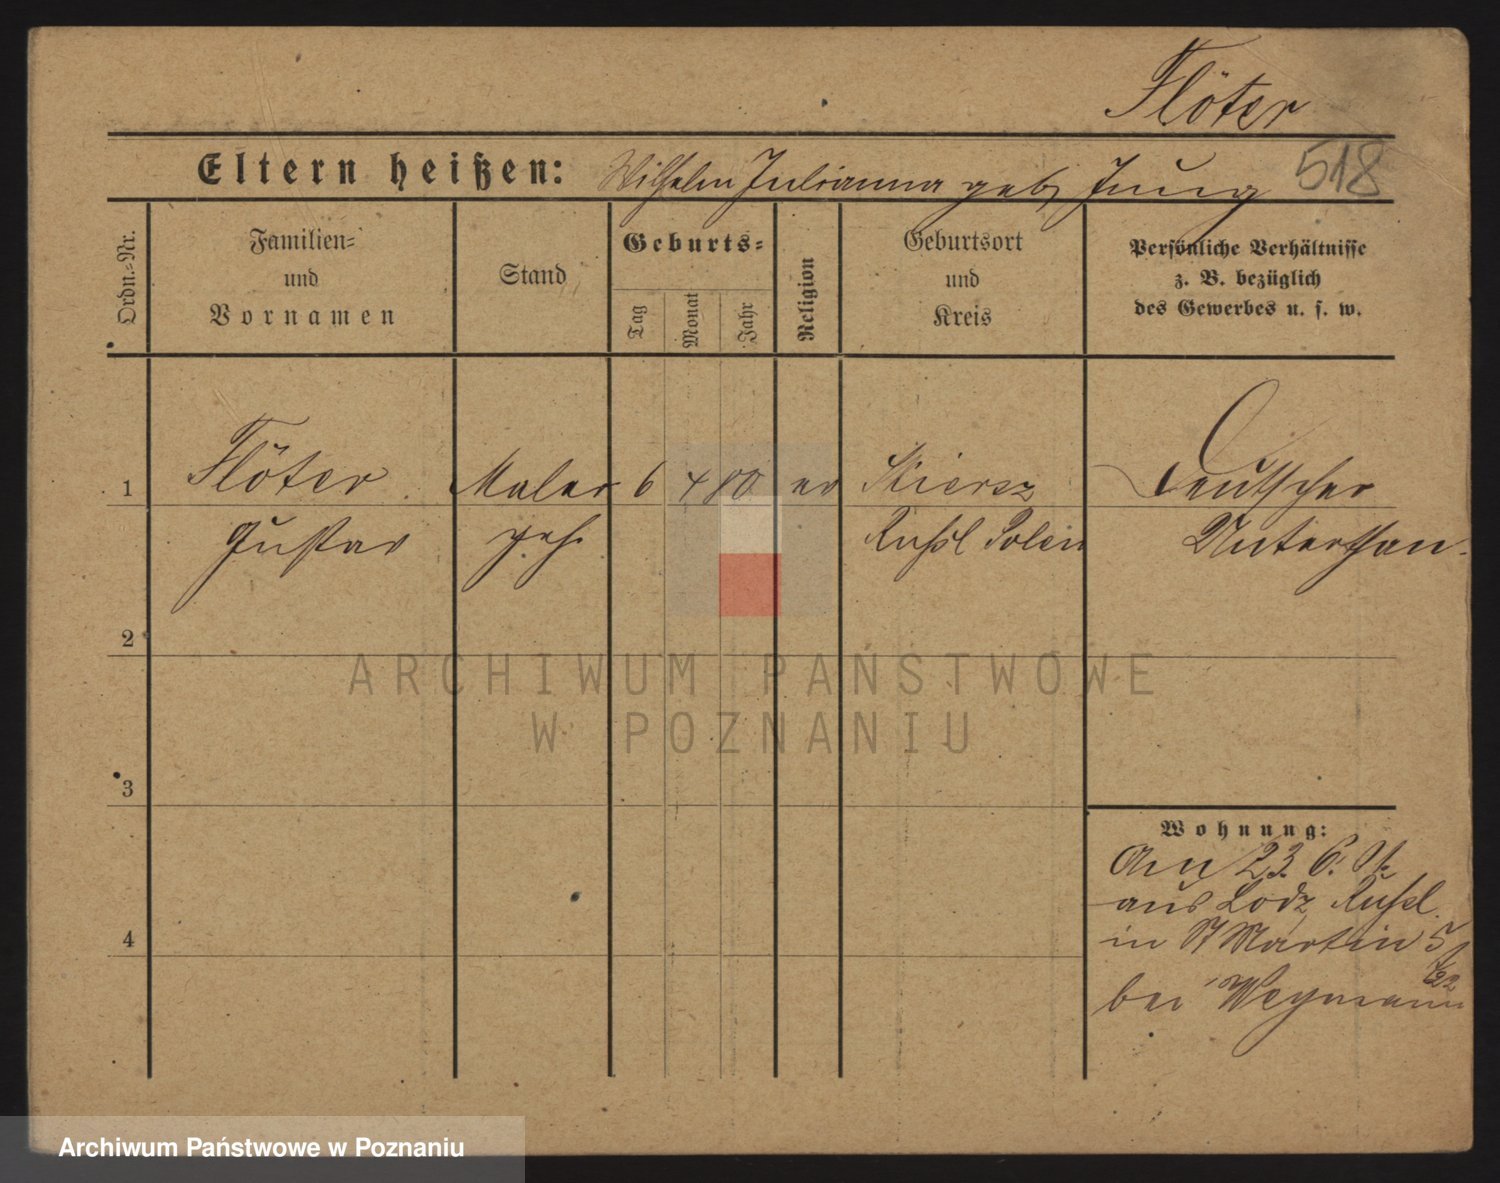 Flöter
518
Eltern heißen: Wilhelm Julianna geb Jung
Ordn.-Nr.
Familien-
und
Vornamen
Stand
Geburts-
Tag
Monat
Jahr
Religion
Geburtsort
und
Kreis
Persönliche Verhältnisse
z. B. bezüglich
des Gewerbes u. s. w.
1 Flöter Maler 6 4 80 ev Deutscher
Gustav geh. Russl Polen Unterthan.
2
3
4
Wohnung:
Am 23. 6.
aus Lodz Russl.
in St Martin 57
bei Wegmann
ARCHIWUM PAŃSTWOWE
W POZNANIU
Archiwum Państwowe w Poznaniu